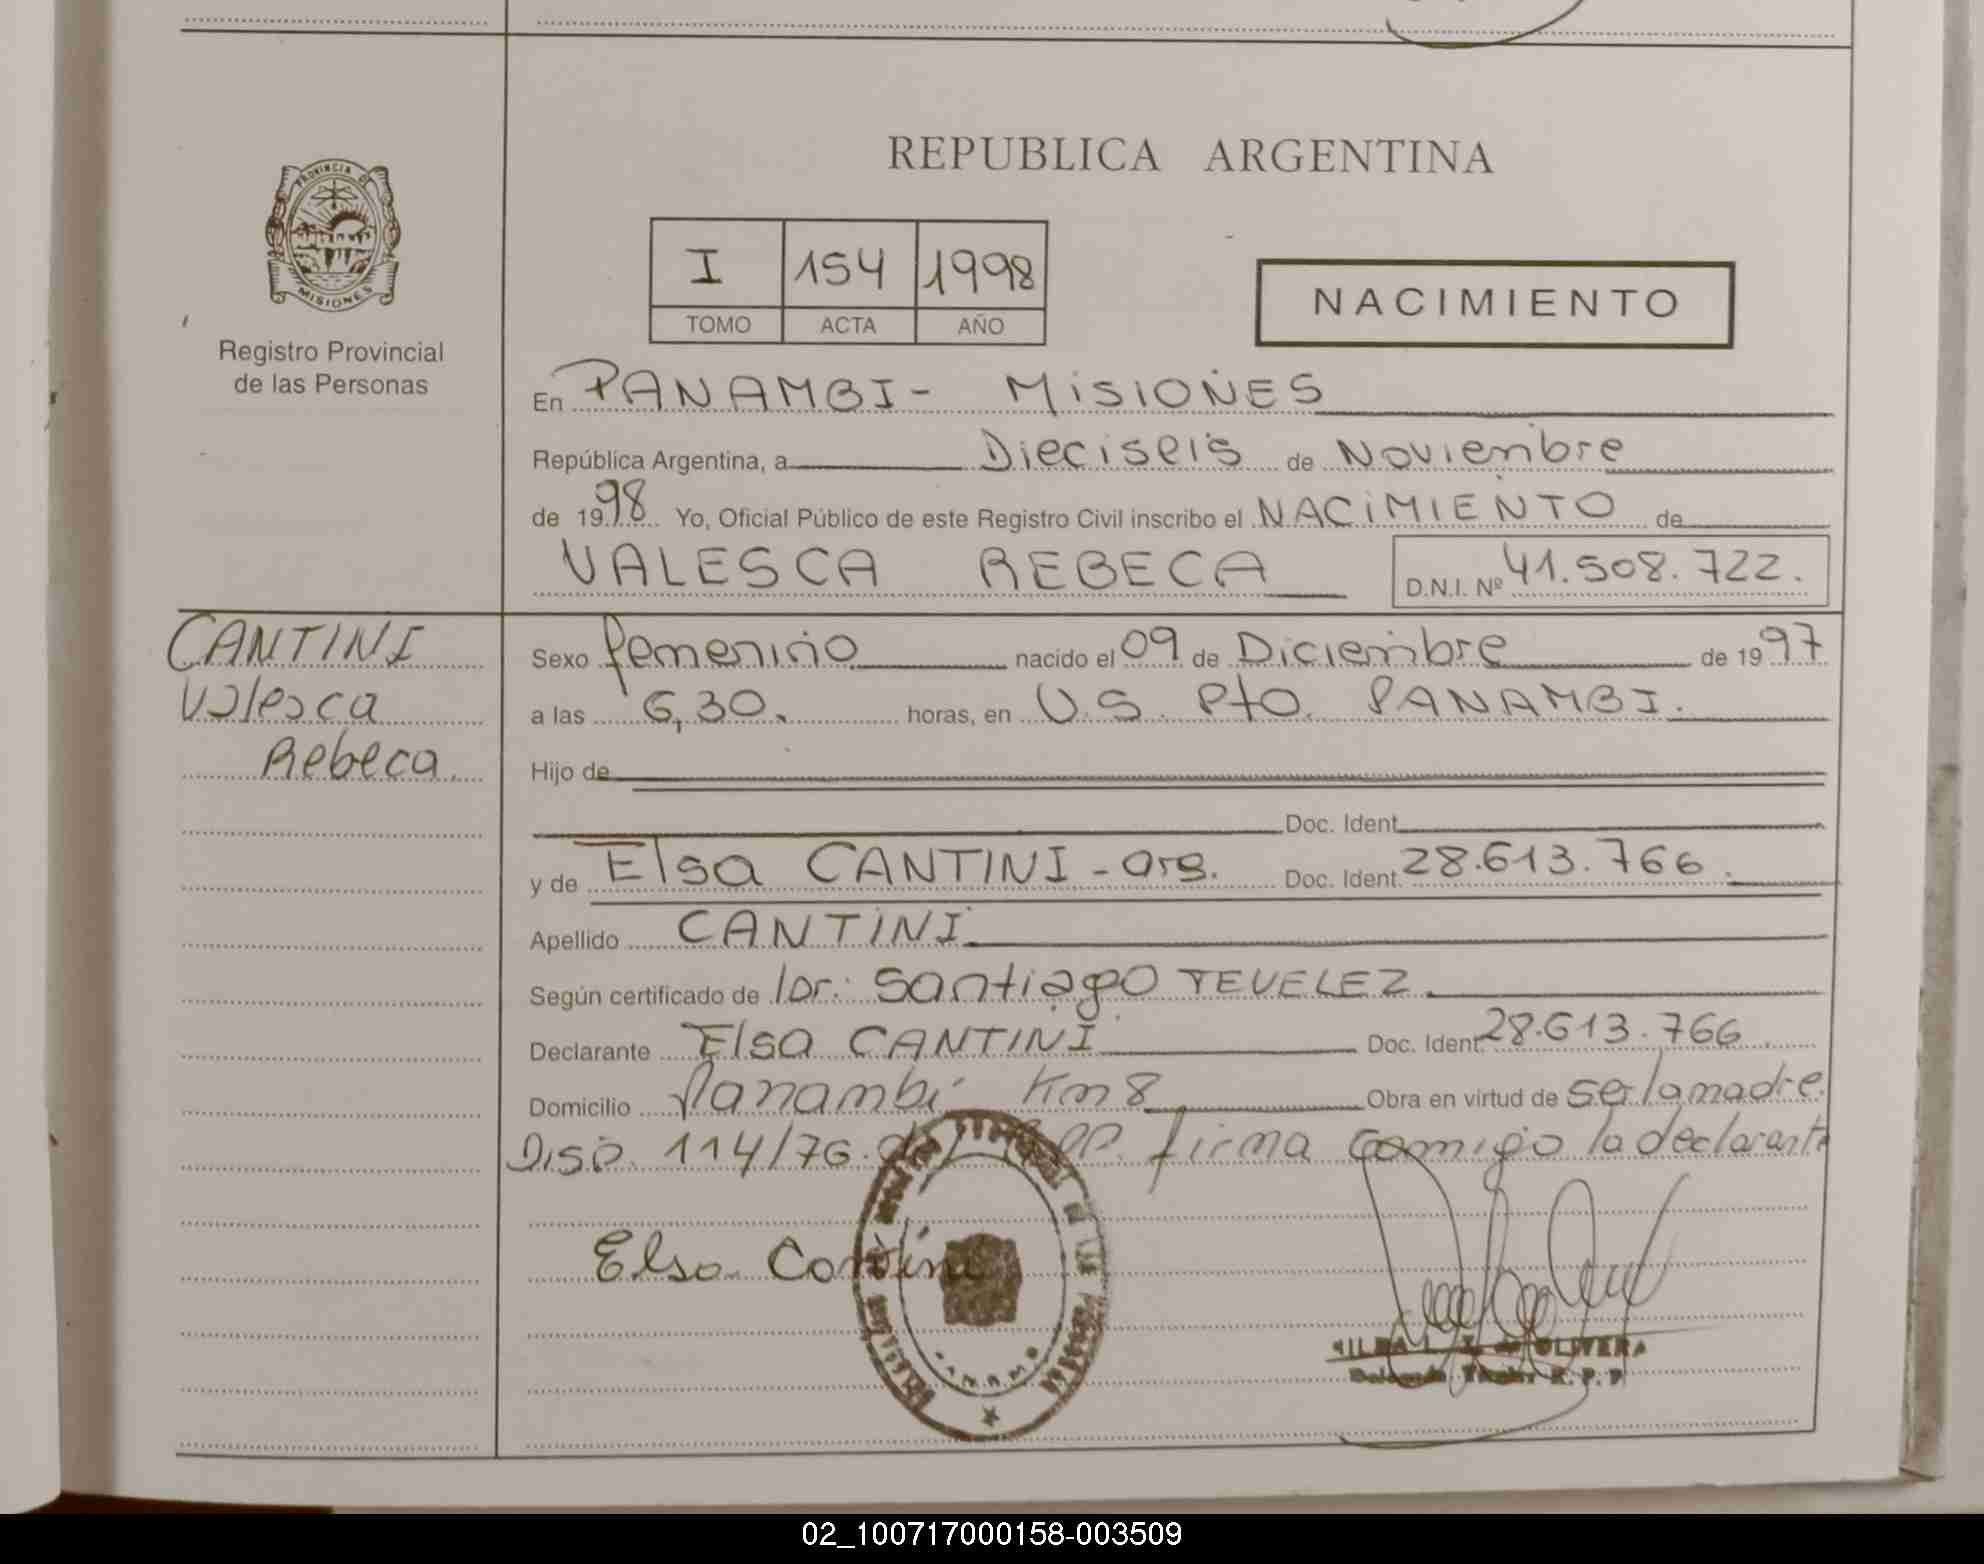 REPUBLICA ARGENTINA
PROVINCIA DE
MISIONES
Registro Provincial
de las Personas
I 154 1998
TOMO ACTA AÑO
NACIMIENTO
En PANAMBI - MISIONES
República Argentina, a Dieciseis de Noviembre
de 1998 Yo, Oficial Público de este Registro Civil inscribo el NACIMIENTO de
VALESCA REBECA D.N.I. Nº 41.508.722.
CANTINI
Valesca
Rebeca
Sexo femenino nacido el 09 de Diciembre de 1997
a las 6,30. horas, en U.S. Pto. PANAMBI.
Hijo de
Doc. Ident.
y de Elsa CANTINI - arg. Doc. Ident. 28.613.766.
Apellido CANTINI
Según certificado de Dr: Santiago TEVELEZ.
Declarante Elsa CANTINI Doc. Ident. 28.613.766
Domicilio Panambi Km 8 Obra en virtud de ser la madre.
Disp. 114/76. firma comigo la declarante
Elsa Cantini
OLIVERA
R.P.P.
02_100717000158-003509